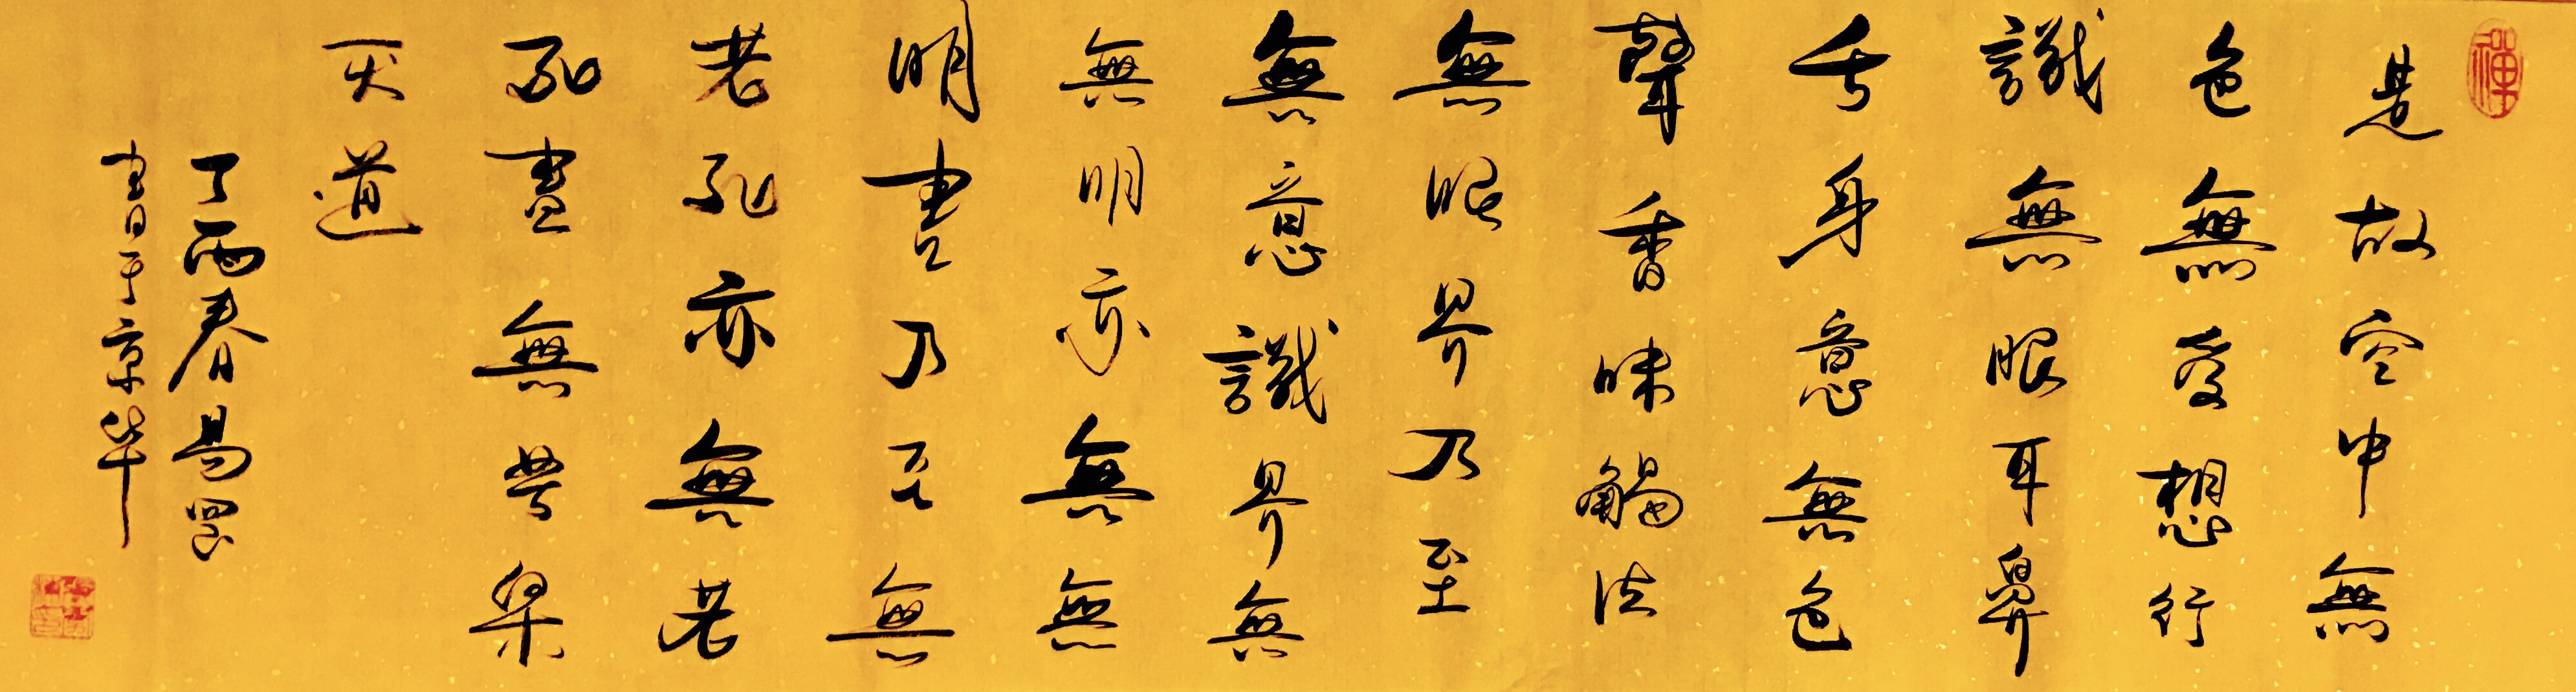 禪
是故空中無
色無受想行
識無眼耳鼻
舌身意無色
聲香味觸法
無眼界乃至
無意識界無
無明亦無無
明盡乃至無
老死亦無老
死盡無苦集
灭道
丁酉春易
書于京华